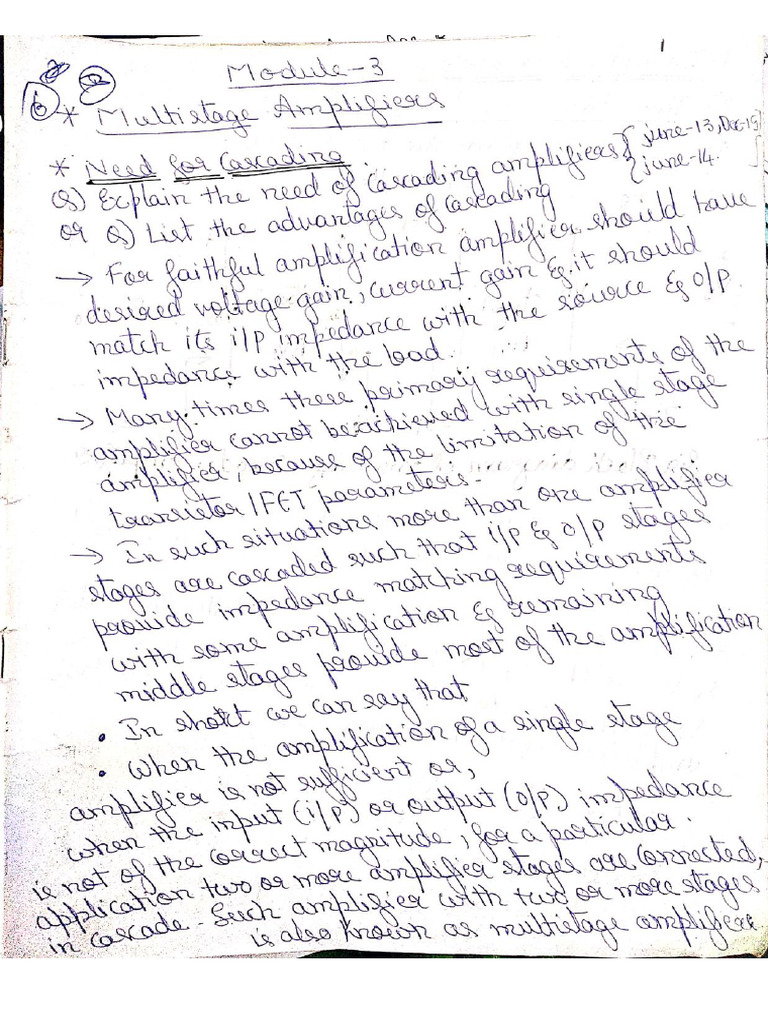 1
Module-3
6
* Multistage Amplifiers
* Need for Cascading
Q) Explain the need of Cascading amplifiers { june-13, Dec-15
june-14.
or Q) List the advantages of cascading
→ For faithful amplification amplifier should have
desired voltage gain, current gain & it should
match its i/p impedance with the source & o/p
impedance with the load.
→ Many times these primary requirements of the
amplifier cannot be achieved with single stage
amplifier, because of the limitation of the
transistor/FET parameters.
→ In such situations more than one amplifier
stages are cascaded such that i/p & o/p stages
provide impedance matching requirements
with some amplification & remaining
middle stages provide most of the amplification
• In short we can say that
• When the amplification of a single stage
amplifier is not sufficient or,
when the input (i/p) or output (o/p) impedance
is not of the correct magnitude, for a particular
application two or more amplifier stages are connected,
in cascade. Such amplifier with two or more stages
is also known as multistage amplifier